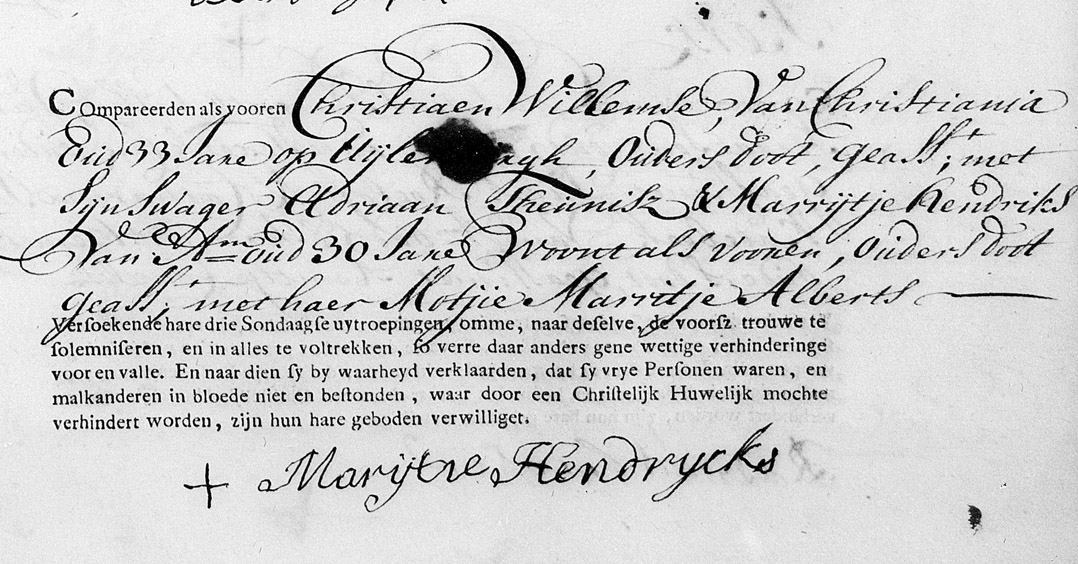 COmpareerden als vooren Christiaen Willemse, Van Christiania
Oud 33 Jare op Uÿlen agh, Ouders doot, geass; met
Sÿn Swager Adriaan Theunisz & Marrÿtje Hendriks
Van Am= Oud 30 Jare Woont als Vooren, Ouders doot
geass; met haer Motjie Marritje Alberts
Versoekende hare drie Sondaagse uytroepingen, omme, naar deselve, de voorsz trouwe te
solemniseren, en in alles te voltrekken, so verre daar anders gene wettige verhinderinge
voor en valle. En naar dien sy by waarheyd verklaarden, dat sy vrye Personen waren, en
malkanderen in bloede niet en bestonden, waar door een Christelijk Huwelijk mochte
verhindert worden, zijn hun hare geboden verwilliget.
+ Marÿtie Hendrycks